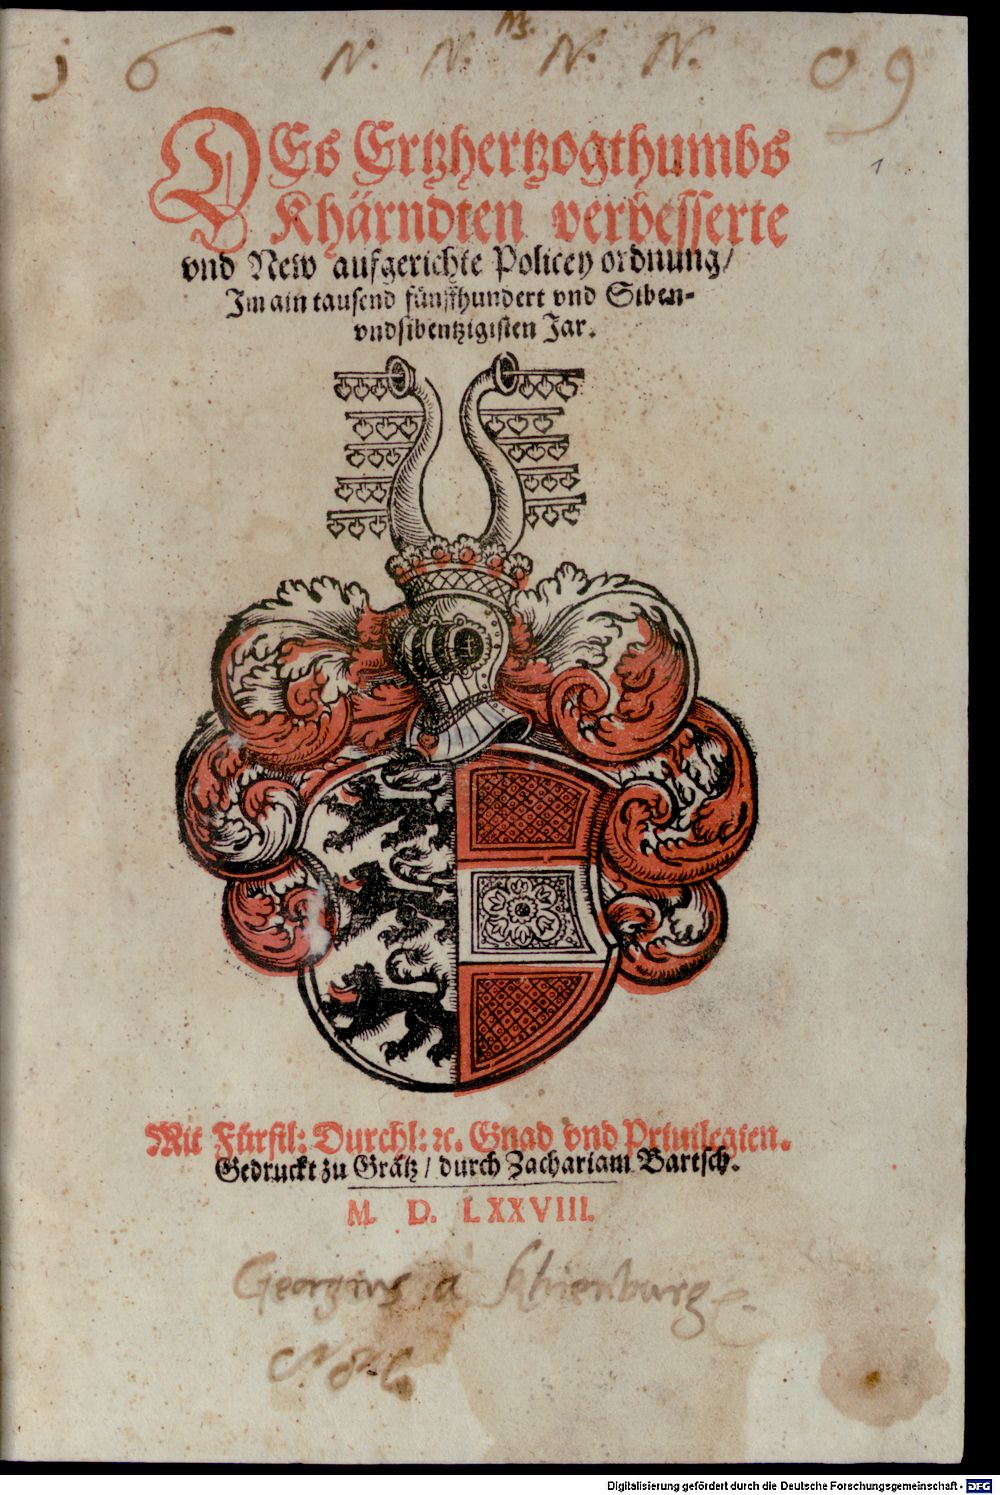 Nz.
16 N. N. N. N. 09
DEs Ertzhertzogthumbs
1
Khärndten verbesserte
vnd New aufgerichte Policey ordnung/
Im ain tausend fünffhundert vnd Siben-
vndsibentzigisten Jar.
Mit Fürstl: Durchl: ꝛc. Gnad vnd Priuilegien.
Gedruckt zu Grätz/ durch Zachariam Bartsch.
M. D. LXXVIII.
Georgius a Khienburg
Digitalisierung gefördert durch die Deutsche Forschungsgemeinschaft - DFG